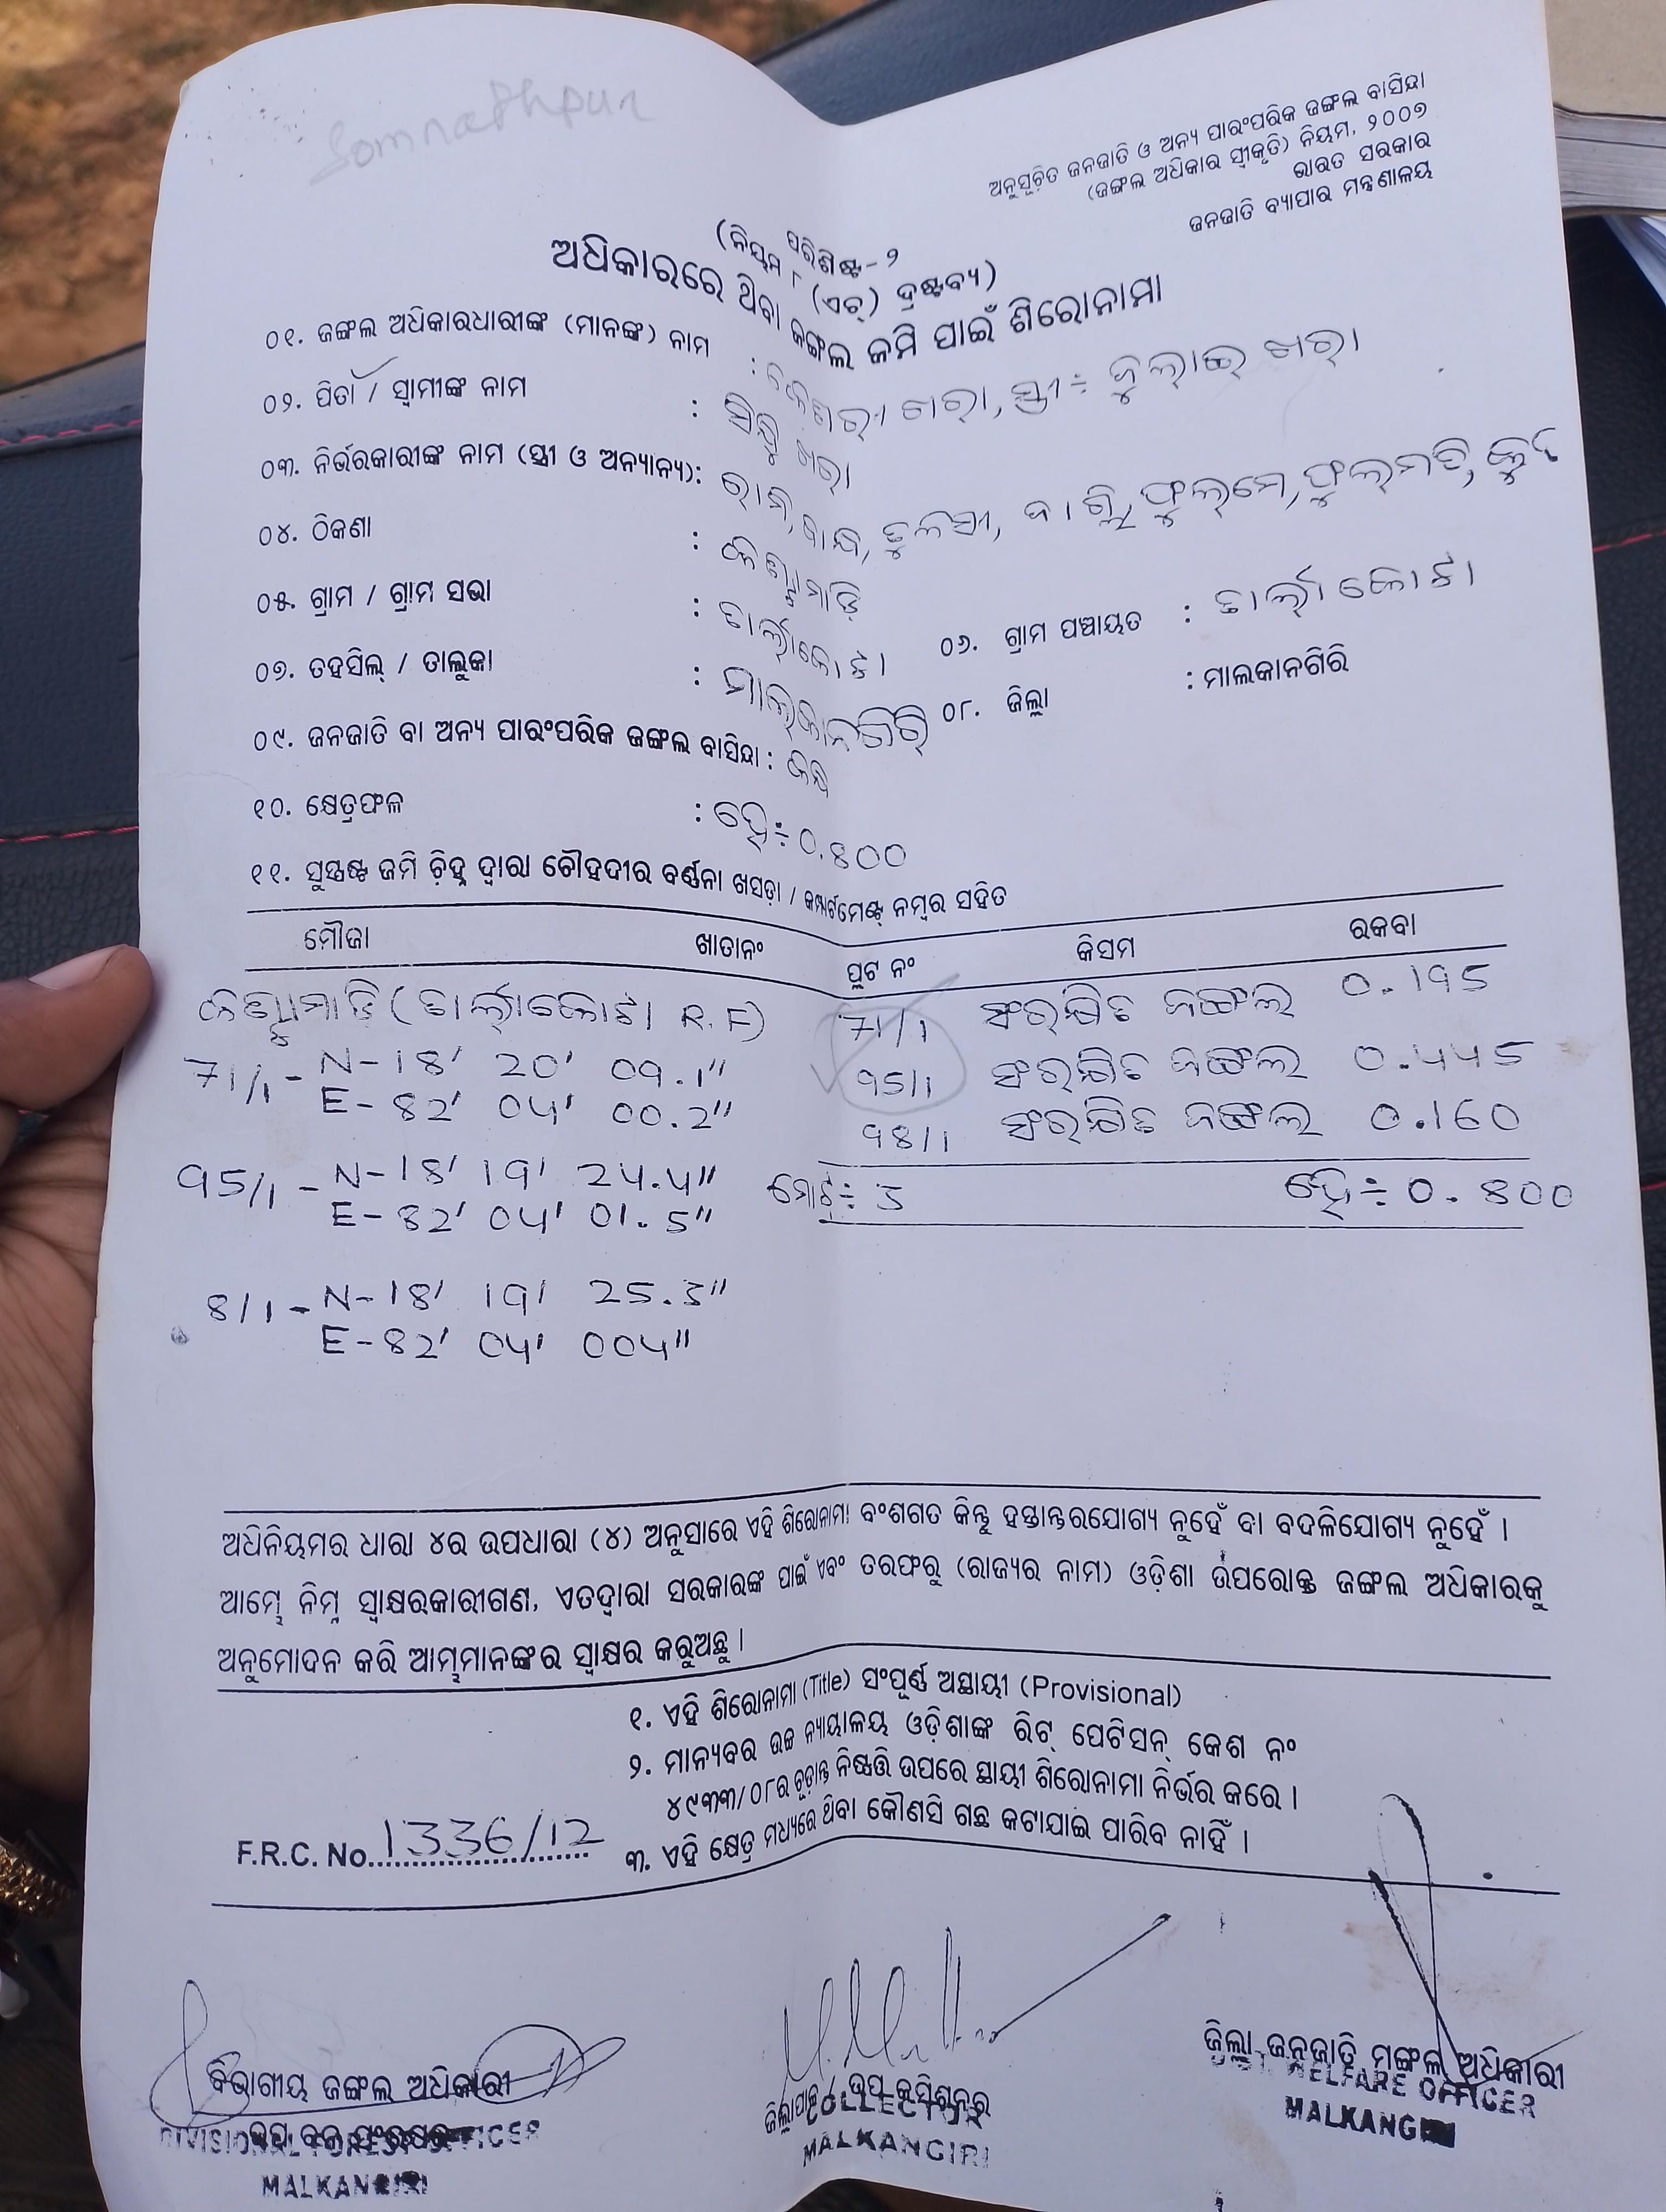 Somnathpur
ଅନୁସୂଚିତ ଜନଜାତି ଓ ଅନ୍ୟ ପାରଂପରିକ ଜଙ୍ଗଲ ବାସିନ୍ଦା
(ଜଙ୍ଗଲ ଅଧିକାର ସ୍ୱୀକୃତି) ନିୟମ, ୨୦୦୭
ଭାରତ ସରକାର
ଜନଜାତି ବ୍ୟାପାର ମନ୍ତ୍ରଣାଳୟ
ପରିଶିଷ୍ଟ-୨
(ନିୟମ ୮ (ଏଚ୍) ଦ୍ରଷ୍ଟବ୍ୟ)
ଅଧିକାରରେ ଥିବା ଜଙ୍ଗଲ ଜମି ପାଇଁ ଶିରୋନାମା
୦୧. ଜଙ୍ଗଲ ଅଧିକାରଧାରୀଙ୍କ (ମାନଙ୍କ) ନାମ : ଖରା, ସ୍ତ୍ରୀ÷ ଖରା
୦୨. ପିତା / ସ୍ୱାମୀଙ୍କ ନାମ : ଖରା
୦୩. ନିର୍ଭରକାରୀଙ୍କ ନାମ (ସ୍ତ୍ରୀ ଓ ଅନ୍ୟାନ୍ୟ): ତୁଳସୀ, ଫୁଲମେ, ଫୁଲମତି,
୦୪. ଠିକଣା :
୦୫. ଗ୍ରାମ / ଗ୍ରାମ ସଭା : ଟାର୍ଲାକୋଟା ୦୬. ଗ୍ରାମ ପଞ୍ଚାୟତ : ଟାର୍ଲାକୋଟା
୦୭. ତହସିଲ୍ / ତାଲୁକା : ମାଲ୍କାନଗିରି ୦୮. ଜିଲ୍ଲା : ମାଲକାନଗିରି
୦୯. ଜନଜାତି ବା ଅନ୍ୟ ପାରଂପରିକ ଜଙ୍ଗଲ ବାସିନ୍ଦା : କନ୍ଧ
୧୦. କ୍ଷେତ୍ରଫଳ : ହେ÷ 0.800
୧୧. ସୁସ୍ପଷ୍ଟ ଜମି ଚିହ୍ନ ଦ୍ୱାରା ଚୌହଦୀର ବର୍ଣ୍ଣନା ଖସଡ଼ା / କମ୍ପାର୍ଟମେଣ୍ଟ ନମ୍ବର ସହିତ
ମୌଜା ଖାତାନଂ ପ୍ଲଟ ନଂ କିସମ ରକବା
(ଟାର୍ଲାକୋଟା R.F) 71/1 ସଂରକ୍ଷିତ ଜଙ୍ଗଲ 0.195
71/1 - N-18' 20' 09.1" 95/1 ସଂରକ୍ଷିତ ଜଙ୍ଗଲ 0.445
E-82' 04' 00.2" 98/1 ସଂରକ୍ଷିତ ଜଙ୍ଗଲ 0.160
95/1 - N-18' 19' 24.4" ମୋଟ÷ 3 ହେ÷ 0.800
E-82' 04' 01.5"
8/1 - N-18' 19' 25.3"
E-82' 04' 004"
ଅଧିନିୟମର ଧାରା ୪ର ଉପଧାରା (୪) ଅନୁସାରେ ଏହି ଶିରୋନାମା ବଂଶଗତ କିନ୍ତୁ ହସ୍ତାନ୍ତରଯୋଗ୍ୟ ନୁହେଁ ବା ବଦଳିଯୋଗ୍ୟ ନୁହେଁ ।
ଆମ୍ଭେ ନିମ୍ନ ସ୍ୱାକ୍ଷରକାରୀଗଣ, ଏତଦ୍ୱାରା ସରକାରଙ୍କ ପାଇଁ ଏବଂ ତରଫରୁ (ରାଜ୍ୟର ନାମ) ଓଡ଼ିଶା ଉପରୋକ୍ତ ଜଙ୍ଗଲ ଅଧିକାରକୁ
ଅନୁମୋଦନ କରି ଆମ୍ଭମାନଙ୍କର ସ୍ୱାକ୍ଷର କରୁଅଛୁ ।
୧. ଏହି ଶିରୋନାମା (Title) ସଂପୂର୍ଣ୍ଣ ଅସ୍ଥାୟୀ (Provisional)
୨. ମାନ୍ୟବର ଉଚ୍ଚ ନ୍ୟାୟାଳୟ ଓଡ଼ିଶାଙ୍କ ରିଟ୍ ପେଟିସନ୍ କେଶ ନଂ
୪୯୩୩/୦୮ର ଚୂଡ଼ାନ୍ତ ନିଷ୍ପତ୍ତି ଉପରେ ସ୍ଥାୟୀ ଶିରୋନାମା ନିର୍ଭର କରେ ।
୩. ଏହି କ୍ଷେତ୍ର ମଧ୍ୟରେ ଥିବା କୌଣସି ଗଛ କଟାଯାଇ ପାରିବ ନାହିଁ ।
F.R.C. No. 1336/12
ବିଭାଗୀୟ ଜଙ୍ଗଲ ଅଧିକାରୀ
DIVISIONAL FOREST OFFICER
MALKANGIRI
ଜିଲ୍ଲାପାଳ / ଉପ କମିଶନର
COLLECTOR
MALKANGIRI
ଜିଲ୍ଲା ଜନଜାତି ମଙ୍ଗଳ ଅଧିକାରୀ
WELFARE OFFICER
MALKANGIRI